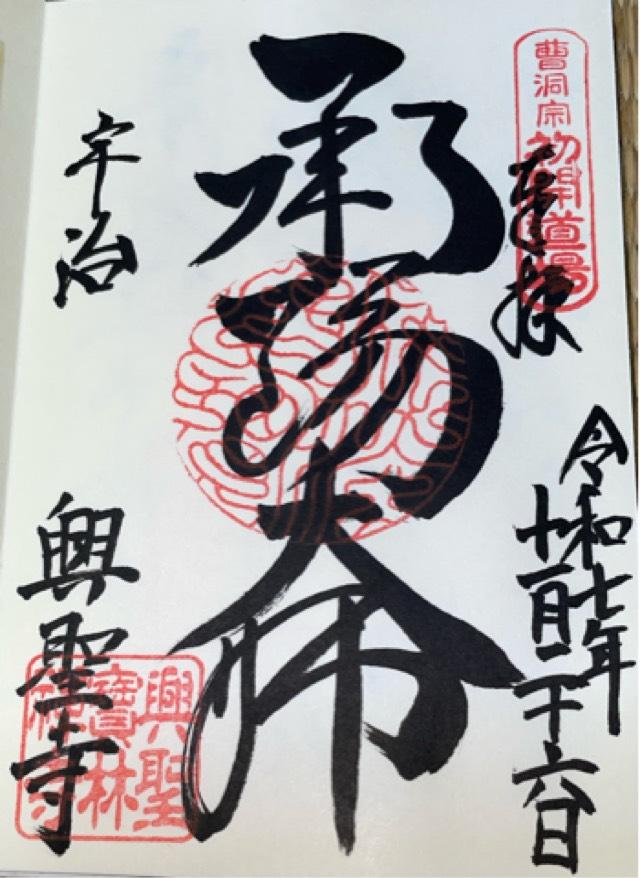 曹洞宗初開道場
奉拝
令和七年
十一月二十六日
承陽大師
宇治
興聖寺
興聖
寶林
禅寺